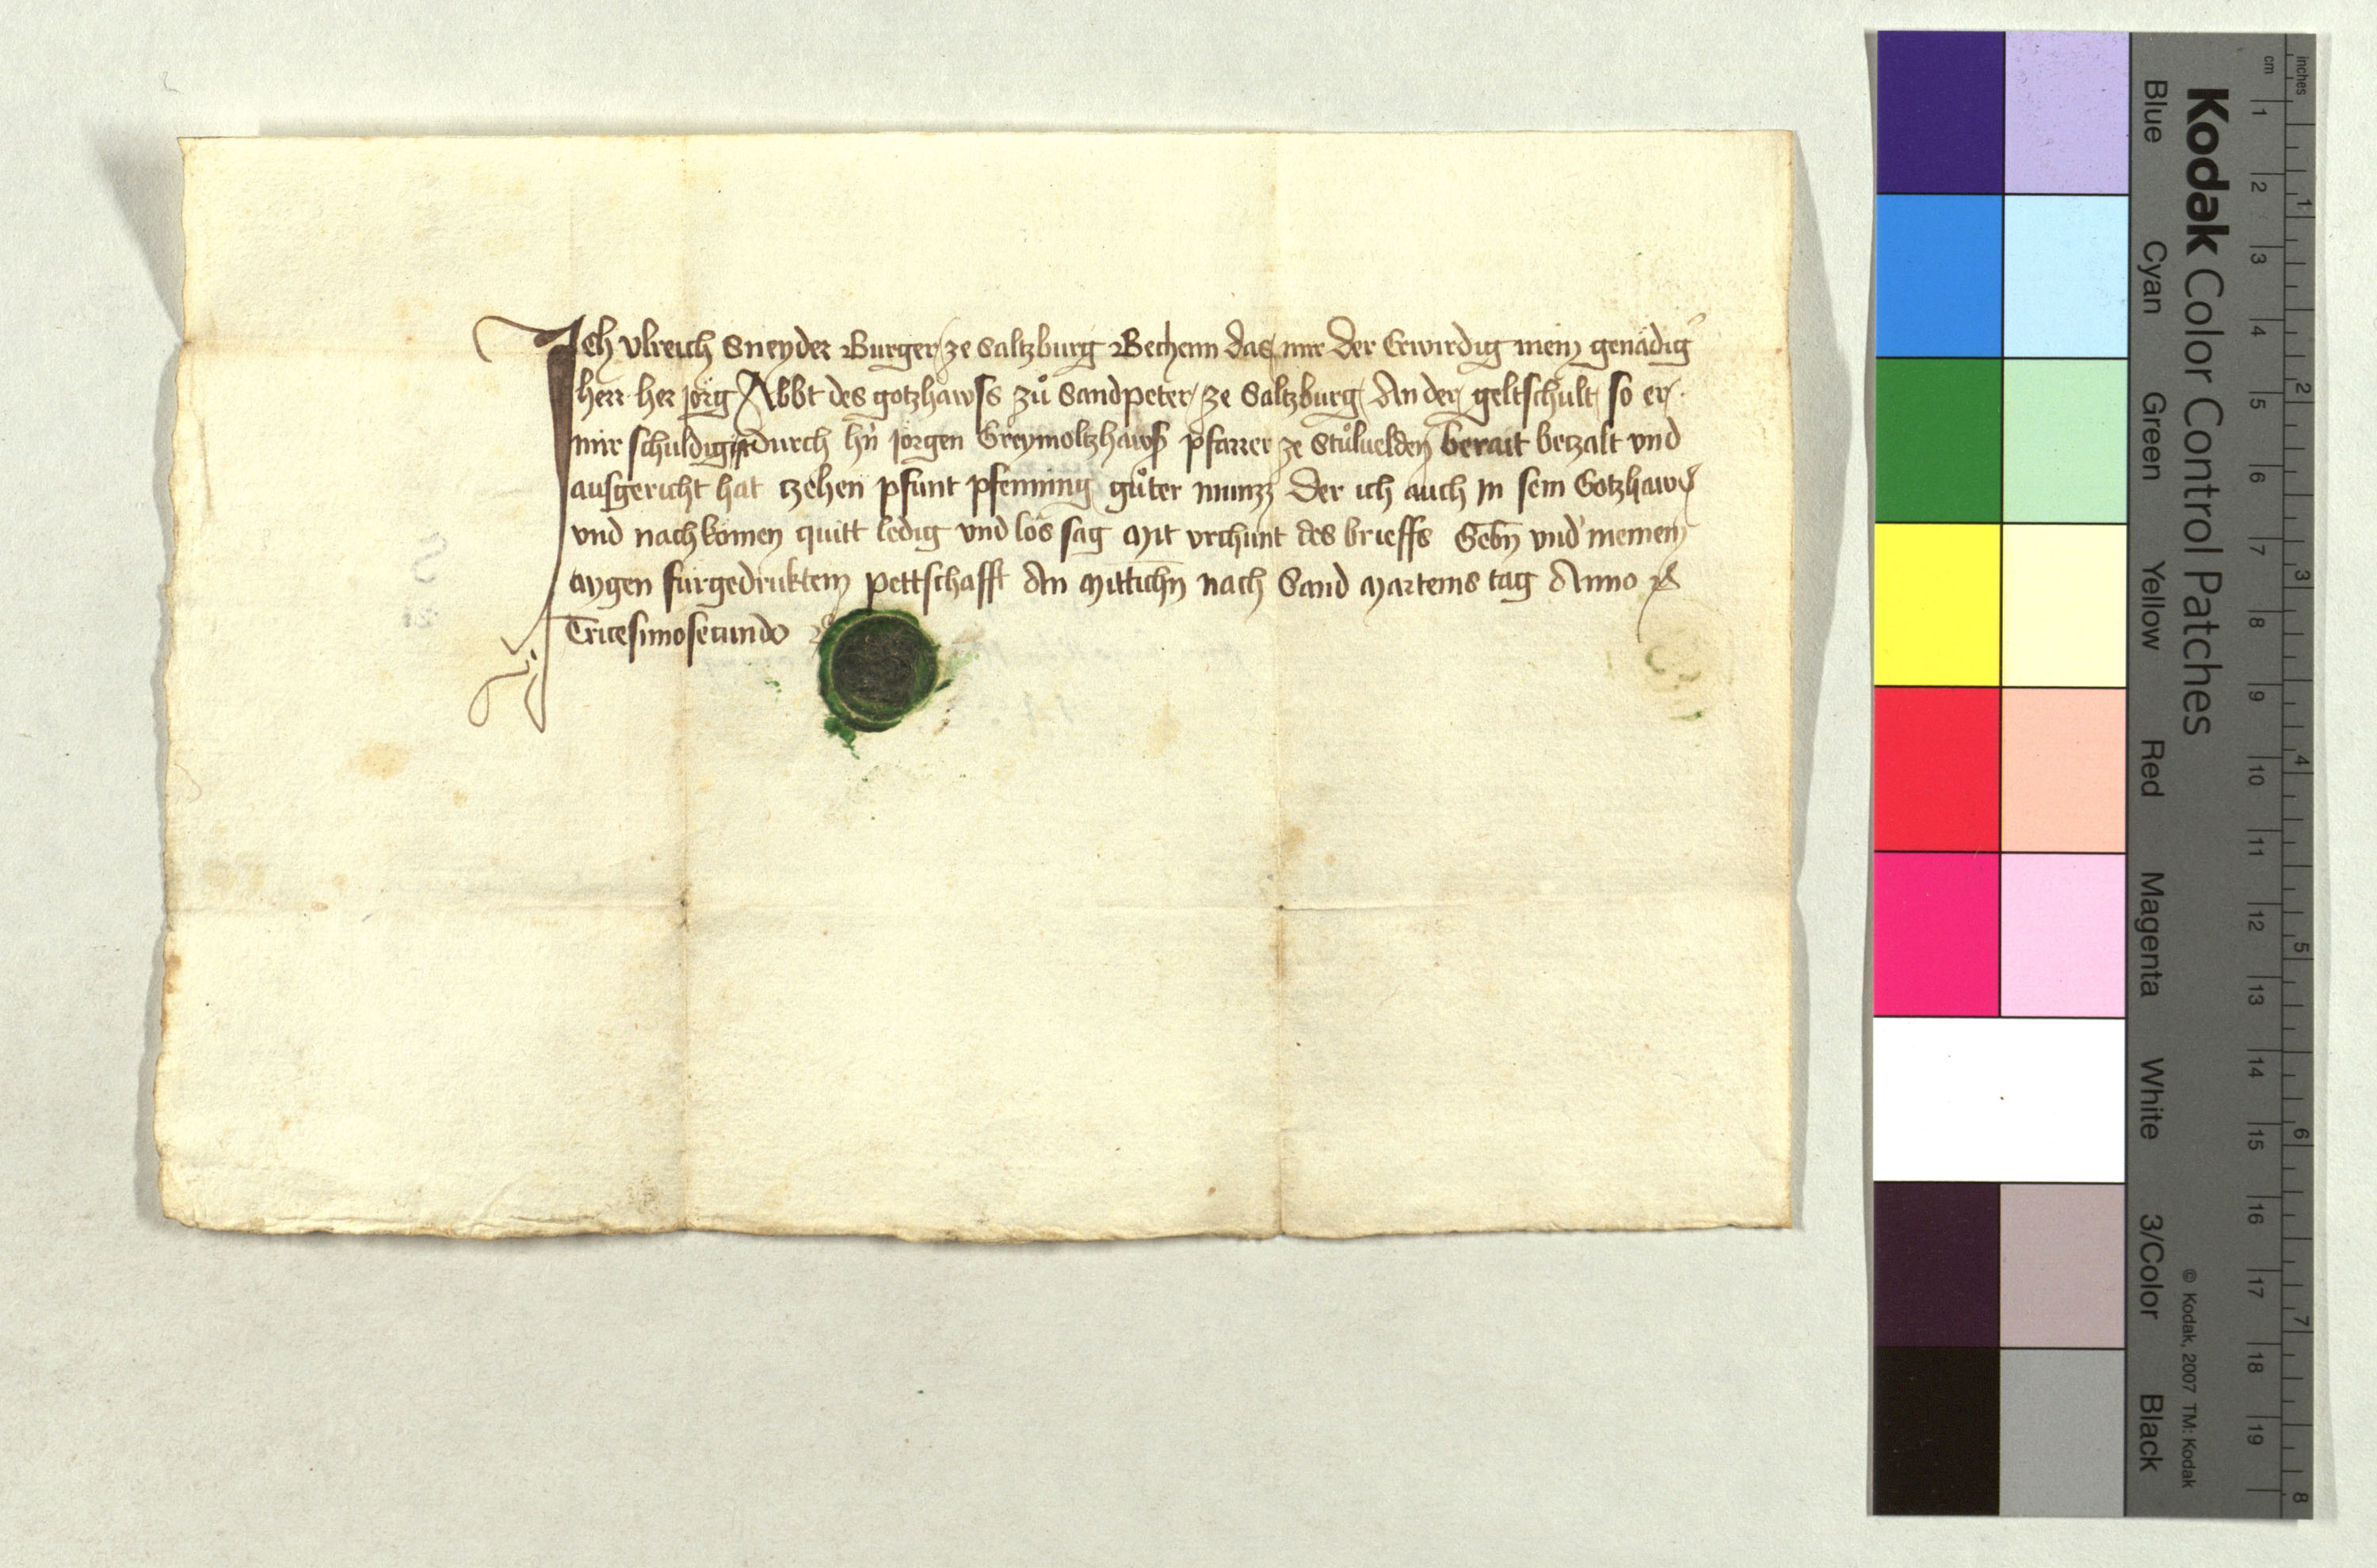 Ich Vlreich Sneyder Burger ze Saltzburg Bechenn das mir der Erwirdig mein genädig'
herr her Jörg Abbt des gotzhawss zů Sandpeter ze Saltzburg An der geltschult so er
mir schuldig ist durch hn̄ Jörgen Greymoltzhawss pfarrer ze Stůluelden berait betzalt vnd
ausgericht hat tzehen pfunt pfenning gůter munzz Der ich auch In sein Gotzhaws
vnd nachkömen quitt ledig vnd los sag Mit vrchunt des brieffs Gebn̄ vnd' meinem
aygen fürgedruktem pettschafft An Mittichn̄ nach Sand Marteins tag Anno etc
Tricesimosecundo
Kodak Color Control Patches
Blue Cyan Green Yellow Red Magenta White 3/Color Black
© Kodak, 2007 TM: Kodak
inches 1 2 3 4 5 6 7 8
cm 1 2 3 4 5 6 7 8 9 10 11 12 13 14 15 16 17 18 19